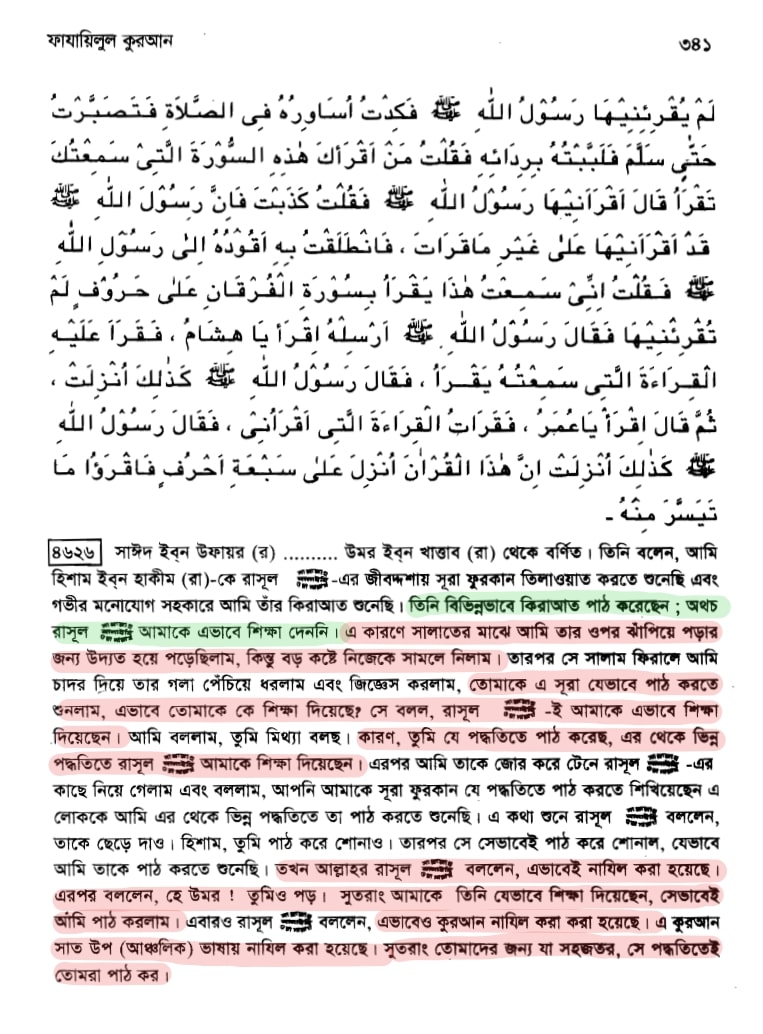 ফাযায়িলুল কুরআন
৩৪১
لَمْ يُقْرِئْنِيْهَا رَسُوْلُ اللّٰهِ ﷺ فَكِدْتُ اُسَاوِرُهُ فِى الصَّلاَةِ فَتَصَبَّرْتُ
حَتّٰى سَلَّمَ فَلَبَّبْتُهُ بِرِدَائِهِ فَقُلْتُ مَنْ اَقْرَأَكَ هٰذِهِ السُّوْرَةَ الَّتِىْ سَمِعْتُكَ
تَقْرَأُ قَالَ اَقْرَاَنِيْهَا رَسُوْلُ اللّٰهِ ﷺ فَقُلْتُ كَذَبْتَ فَاِنَّ رَسُوْلَ اللّٰهِ ﷺ
قَدْ اَقْرَاَنِيْهَا عَلٰى غَيْرِ مَاقَرَاتَ ، فَانْطَلَقْتُ بِهِ اَقُوْدُهُ اِلٰى رَسُوْلِ اللّٰهِ
ﷺ فَقُلْتُ اِنِّىْ سَمِعْتُ هٰذَا يَقْرَأُ بِسُوْرَةِ الْفُرْقَانِ عَلٰى حُرُوْفٍ لَمْ
تُقْرِئْنِيْهَا فَقَالَ رَسُوْلُ اللّٰهِ ﷺ اَرْسِلْهُ اِقْرَأْ يَا هِشَامُ ، فَقَرَاَ عَلَيْهِ
الْقِرَاءَةَ الَّتِى سَمِعْتُهُ يَقْرَأُ ، فَقَالَ رَسُوْلُ اللّٰهِ ﷺ كَذٰلِكَ اُنْزِلَتْ ،
ثُمَّ قَالَ اِقْرَأْ يَاعُمَرُ ، فَقَرَاتُ الْقِرَاءَةَ الَّتِى اَقْرَاَنِىْ ، فَقَالَ رَسُوْلُ اللّٰهِ
ﷺ كَذٰلِكَ اُنْزِلَتْ اِنَّ هٰذَا الْقُرْاٰنَ اُنْزِلَ عَلٰى سَبْعَةِ اَحْرُفٍ فَاقْرَؤُا مَا
تَيَسَّرَ مِنْهُ -
৪৬২৬ সাঈদ ইব্‌ন উফায়র (র) .......... উমর ইব্‌ন খাত্তাব (রা) থেকে বর্ণিত। তিনি বলেন, আমি
হিশাম ইব্‌ন হাকীম (রা)-কে রাসূল ﷺ -এর জীবদ্দশায় সূরা ফুরকান তিলাওয়াত করতে শুনেছি এবং
গভীর মনোযোগ সহকারে আমি তাঁর কিরাআত শুনেছি। তিনি বিভিন্নভাবে কিরাআত পাঠ করেছেন ; অথচ
রাসূল ﷺ আমাকে এভাবে শিক্ষা দেননি। এ কারণে সালাতের মাঝে আমি তার ওপর ঝাঁপিয়ে পড়ার
জন্য উদ্যত হয়ে পড়েছিলাম, কিন্তু বড় কষ্টে নিজেকে সামলে নিলাম। তারপর সে সালাম ফিরালে আমি
চাদর দিয়ে তার গলা পেঁচিয়ে ধরলাম এবং জিজ্ঞেস করলাম, তোমাকে এ সূরা যেভাবে পাঠ করতে
শুনলাম, এভাবে তোমাকে কে শিক্ষা দিয়েছে? সে বলল, রাসূল ﷺ -ই আমাকে এভাবে শিক্ষা
দিয়েছেন। আমি বললাম, তুমি মিথ্যা বলছ। কারণ, তুমি যে পদ্ধতিতে পাঠ করেছ, এর থেকে ভিন্ন
পদ্ধতিতে রাসূল ﷺ আমাকে শিক্ষা দিয়েছেন। এরপর আমি তাকে জোর করে টেনে রাসূল ﷺ -এর
কাছে নিয়ে গেলাম এবং বললাম, আপনি আমাকে সূরা ফুরকান যে পদ্ধতিতে পাঠ করতে শিখিয়েছেন এ
লোককে আমি এর থেকে ভিন্ন পদ্ধতিতে তা পাঠ করতে শুনেছি। এ কথা শুনে রাসূল ﷺ বললেন,
তাকে ছেড়ে দাও। হিশাম, তুমি পাঠ করে শোনাও। তারপর সে সেভাবেই পাঠ করে শোনাল, যেভাবে
আমি তাকে পাঠ করতে শুনেছি। তখন আল্লাহর রাসূল ﷺ বললেন, এভাবেই নাযিল করা হয়েছে।
এরপর বললেন, হে উমর ! তুমিও পড়। সুতরাং আমাকে তিনি যেভাবে শিক্ষা দিয়েছেন, সেভাবেই
আমি পাঠ করলাম। এবারও রাসূল ﷺ বললেন, এভাবেও কুরআন নাযিল করা করা হয়েছে। এ কুরআন
সাত উপ (আঞ্চলিক) ভাষায় নাযিল করা হয়েছে। সুতরাং তোমাদের জন্য যা সহজতর, সে পদ্ধতিতেই
তোমরা পাঠ কর।